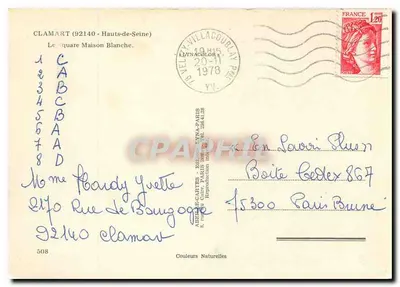 CLAMART (92140 - Hauts-de-Seine)
Le Square Maison Blanche.
1 C
2 A
3 B
4 C
5 B
6 A
7 A
8 D
Mme Hardy Yvette
2170 Rue de Bourgogne
92140 Clamart
508
Couleurs Naturelles
78 VELIZY-VILLACOUBLAY PPAL
20-11
1978
YV.
FRANCE
1,20
En Savoir Plus
Boite Cedex 867
75300 Paris Brune
CPARAMA.COM